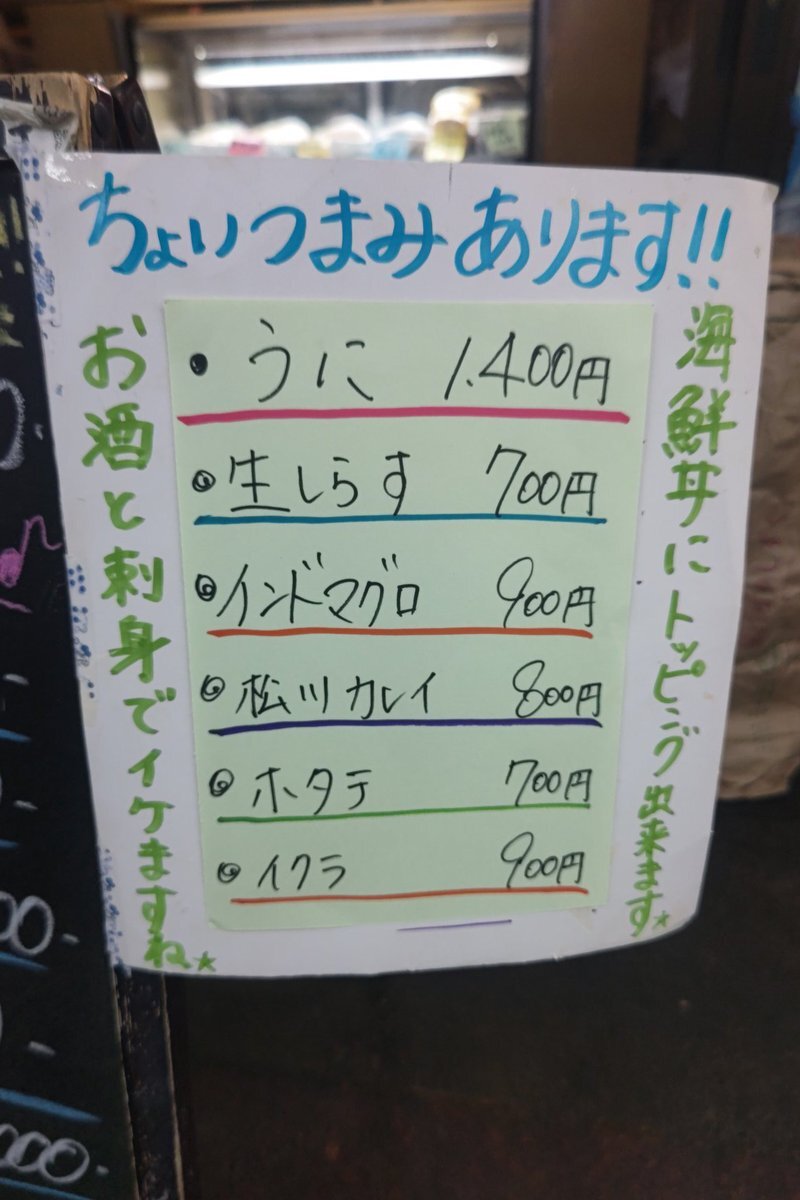 ちょいつまみあります!!
海鮮丼にトッピング出来ます☆
・うに 1.400円
・生しらす 700円
・インドマグロ 900円
・松川カレイ 800円
・ホタテ 700円
・イクラ 900円
お酒と刺身でイケますね☆